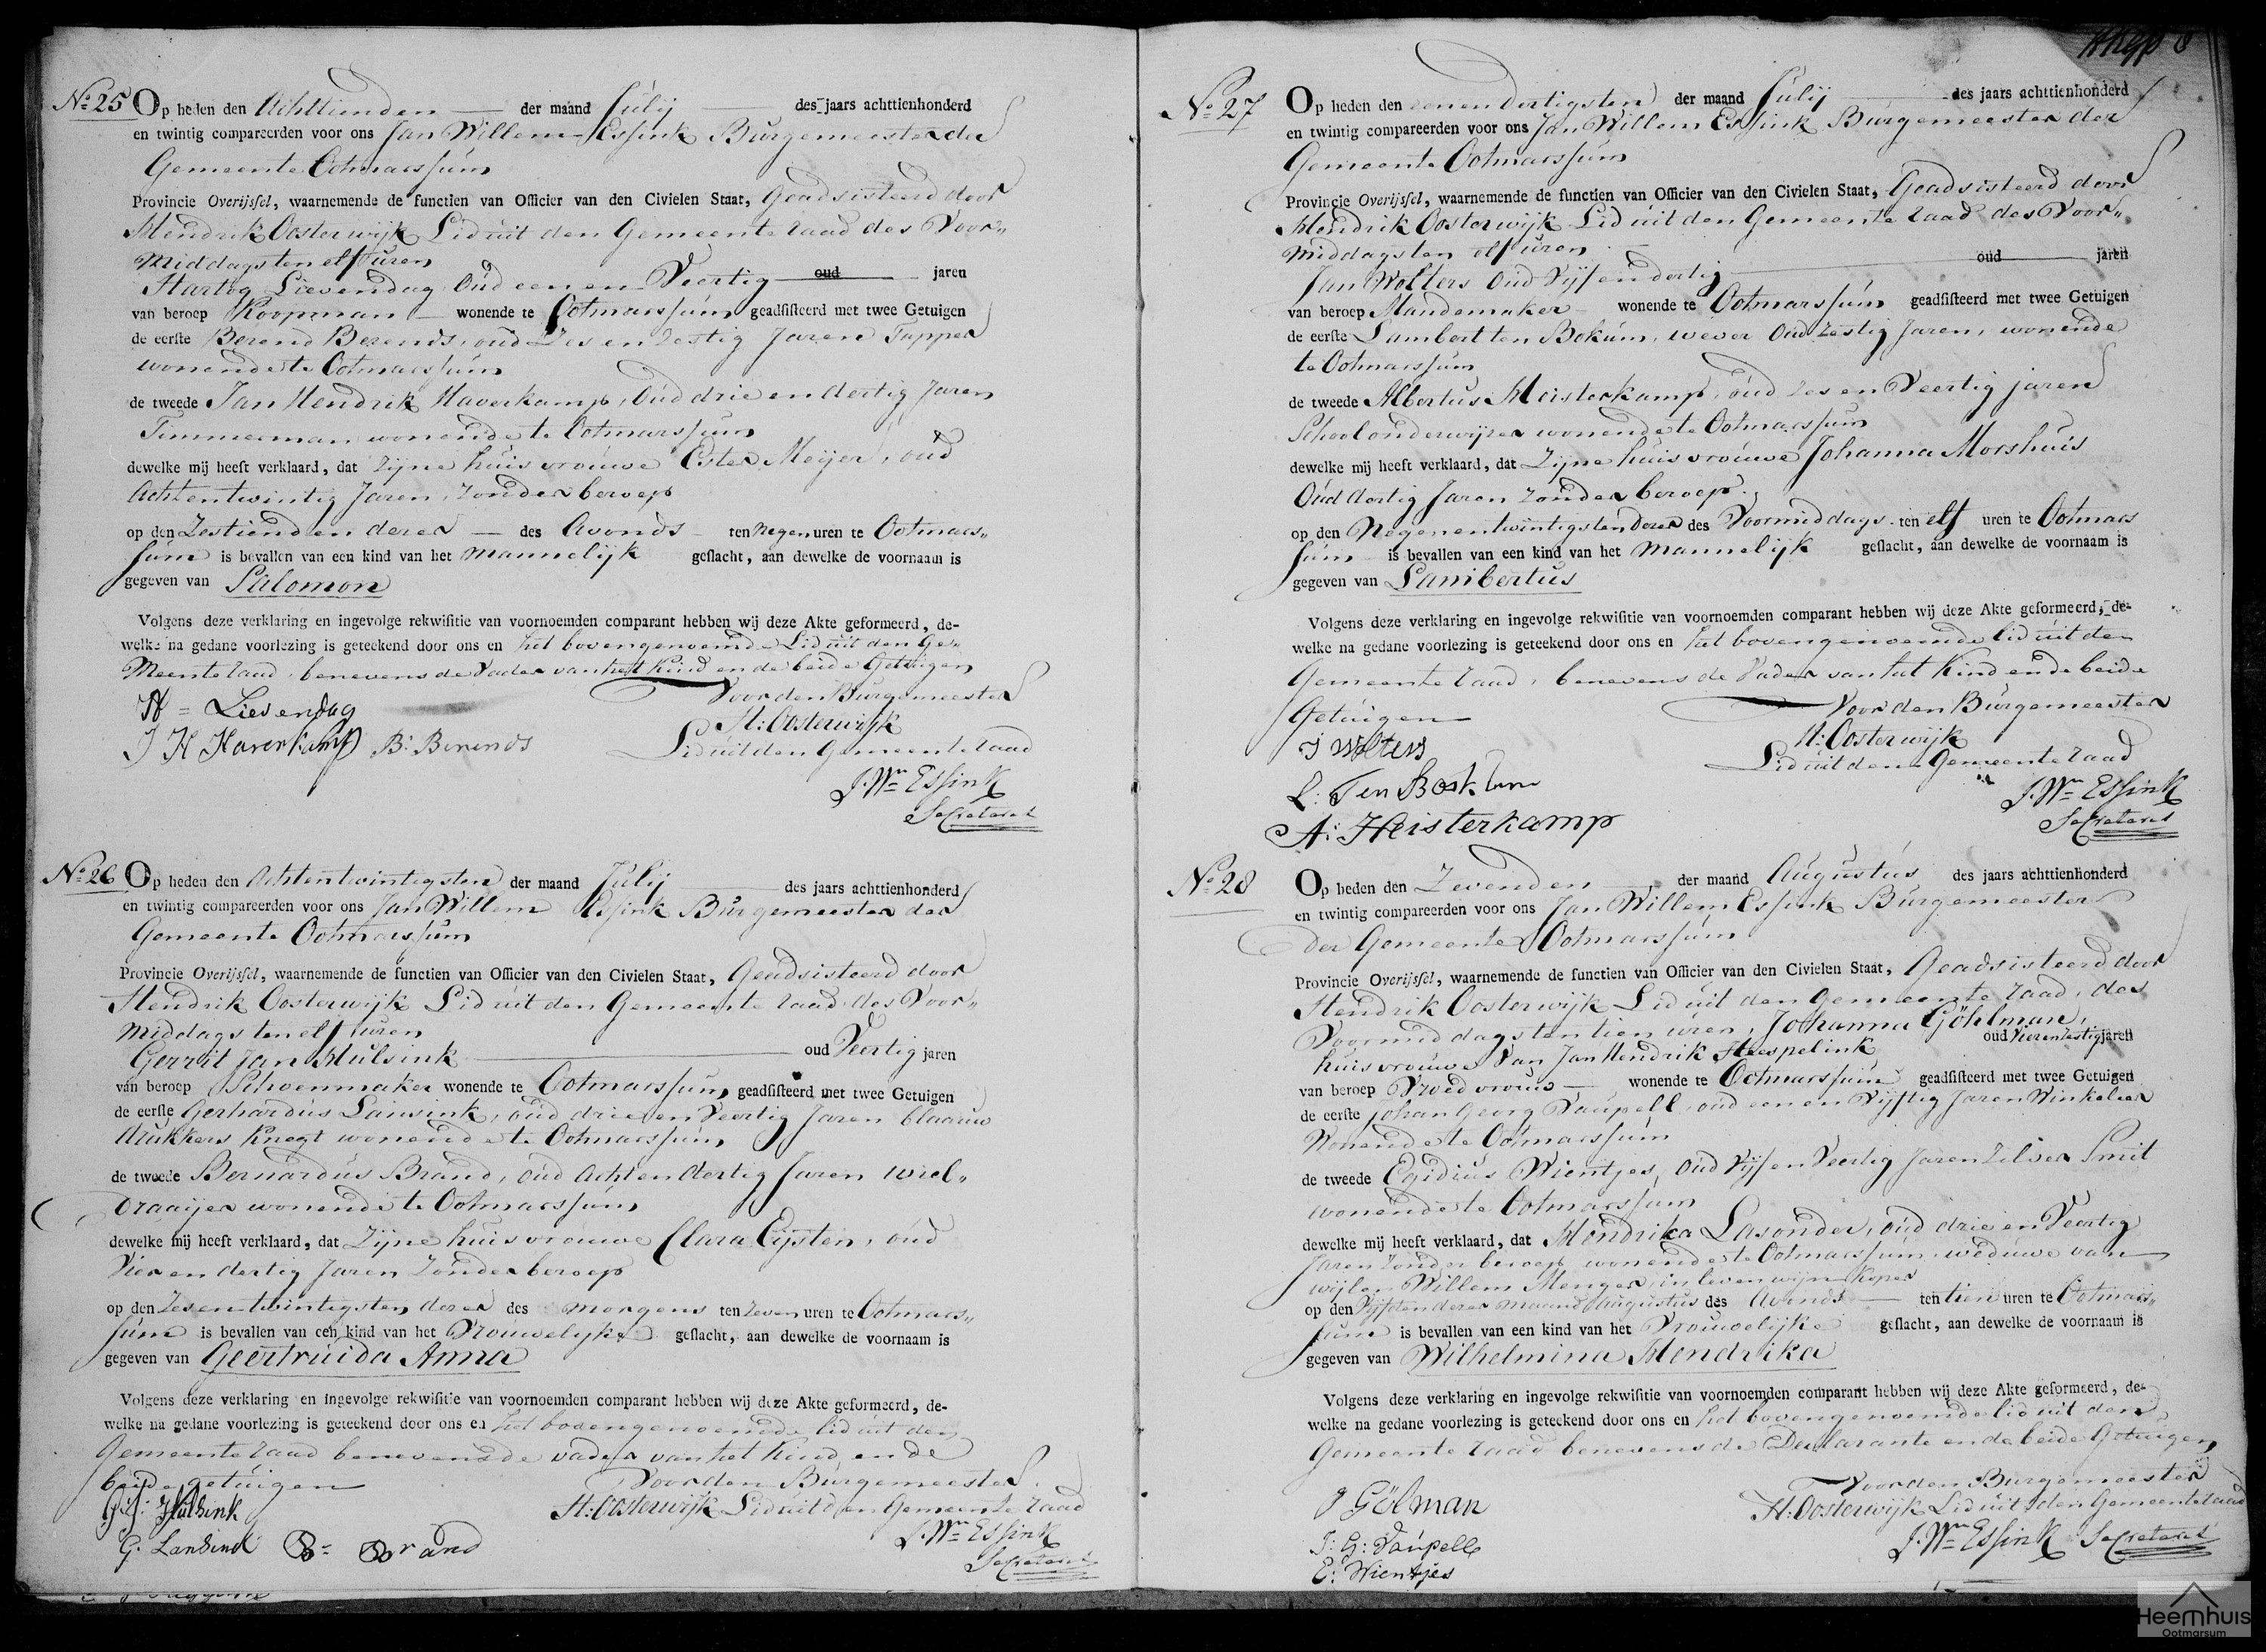 No. 25 Op heden den Achttienden der maand Julij des jaars achttienhonderd
en twintig compareerden voor ons Jan Willem Essink Burgemeester der
Gemeente Ootmarssum
Provincie Overijssel, waarnemende de functien van Officier van den Civielen Staat, Geadsisteerd door
Hendrik Oosterwijk Lid uit den Gemeente raad des Voor„
middags ten elf uren
Hartog Lievendag Oud een en Veertig oud jaren
van beroep Koopman wonende te Ootmarssum geadsisteerd met twee Getuigen
de eerste Berend Berends, oud Zes en Zestig Jaren Tapper
wonende te Ootmarssum
de tweede Jan Hendrik Haverkamp, Oud drie en dertig Jaren
Timmerman wonende te Ootmarssum
dewelke mij heeft verklaard, dat Zijne huisvrouwe Ester Meijer, oud
Achtentwintig Jaren, Zonder beroep
op den Zestienden dezer des Avonds ten Negen uren te Ootmars„
sum is bevallen van een kind van het mannelijk geslacht, aan dewelke de voornaam is
gegeven van Salomon
Volgens deze verklaring en ingevolge rekwisitie van voornoemden comparant hebben wij deze Akte geformeerd, de-
welke na gedane voorlezing is geteekend door ons en het bovengenoemde Lid uit den Ge„
Meente raad, benevens de Vader van het Kind en de beide Getuigen
Voor den Burgemeester
H = Lievendag
H: Oosterwijk
J H Haverkamp B: Berends
Lid uit den Gemeente raad
J. Wm Essink
Secretaris
No. 26 Op heden den Achtentwintigsten der maand Julij des jaars achttienhonderd
en twintig compareerden voor ons Jan Willem Essink Burgemeester der
Gemeente Ootmarssum
Provincie Overijssel, waarnemende de functien van Officier van den Civielen Staat, Geadsisteerd door
Hendrik Oosterwijk Lid uit den Gemeente raad des Voor„
middags ten elf uren
Gerrit Jan Hulsink oud Veertig jaren
van beroep Schoenmaker wonende te Ootmarssum geadsisteerd met twee Getuigen
de eerste Gerhardus Lansink, oud drie en Veertig Jaren blaauw
drukkers Knegt wonende te Ootmarssum
de tweede Bernardus Brand, oud Acht en dertig Jaren wiel„
draaijer wonende te Ootmarssum
dewelke mij heeft verklaard, dat Zijne huisvrouwe Clara Eijsten, oud
Vier en dertig Jaren Zonder beroep
op den Zesentwintigsten dezer des morgens ten Zeven uren te Ootmars„
sum is bevallen van een kind van het Vrouwelijke geslacht, aan dewelke de voornaam is
gegeven van Geertruida Anna
Volgens deze verklaring en ingevolge rekwisitie van voornoemden comparant hebben wij deze Akte geformeerd, de-
welke na gedane voorlezing is geteekend door ons en het bovengenoemde lid uit den
Gemeente raad benevens de vader van het Kind en de
beide getuigen Voor den Burgemeester
G: J: Hulsink H: Oosterwijk Lid uit den Gemeente raad
G. Lansink B = Brand
J. Wm Essink
Secretaris
No. 27 Op heden den eenendertigsten der maand Julij des jaars achttienhonderd
en twintig compareerden voor ons Jan Willem Essink Burgemeester der
Gemeente Ootmarssum
Provincie Overijssel, waarnemende de functien van Officier van den Civielen Staat, Geadsisteerd door
Hendrik Oosterwijk Lid uit den Gemeente raad des Voor„
middags ten elf uren
Jan Wolters Oud Vijfendertig oud jaren
van beroep Mandemaker wonende te Ootmarssum geadsisteerd met twee Getuigen
de eerste Lambert ten Bokum, wever Oud Zestig Jaren, wonende
te Ootmarssum
de tweede Albertus Heisterkamp, oud Zes en Veertig jaren
Schoolonderwijzer wonende te Ootmarssum
dewelke mij heeft verklaard, dat Zijne huisvrouwe Johanna Morshuis
Oud dertig Jaren Zonder beroep
op den Negenentwintigsten dezer des Voormiddags ten elf uren te Ootmars
sum is bevallen van een kind van het mannelijk geslacht, aan dewelke de voornaam is
gegeven van Lambertus
Volgens deze verklaring en ingevolge rekwisitie van voornoemden comparant hebben wij deze Akte geformeerd, de-
welke na gedane voorlezing is geteekend door ons en het bovengenoemde lid uit den
Gemeente raad, benevens de Vader van het Kind en de beide
Getuigen Voor den Burgemeester
J Wolters H: Oosterwijk
Lid uit den Gemeente raad
L: Ten Bokum
J. Wm Essink
A: Heisterkamp Secretaris
No. 28 Op heden den Zevenden der maand Augustus des jaars achttienhonderd
en twintig compareerden voor ons Jan Willem Essink Burgemeester
der Gemeente Ootmarssum
Provincie Overijssel, waarnemende de functien van Officier van den Civielen Staat, Geadsisteerd door
Hendrik Oosterwijk Lid uit den Gemeente raad, des
Voormiddags ten tien uren, Johanna Göhlman,
huisvrouwe Van Jan Hendrik Heespelink oud Vierenzestig jaren
van beroep Vroedvrouw wonende te Ootmarssum geadsisteerd met twee Getuigen
de eerste Johan Georg Vaupell, oud een en Vijftig Jaren Winkelier
Wonende te Ootmarssum
de tweede Egidius Wientjes, Oud Vijf en Veertig Jaren Zilver Smit
wonende te Ootmarssum
dewelke mij heeft verklaard, dat Hendrika Lasonder, oud drie en Veertig
Jaren Zonder beroep wonende te Ootmarssum, weduwe van
wijlen Willem Menger, in leven wijnkoper
op den Vijfden dezer maand Augustus des Avonds ten tien uren te Ootmars„
sum is bevallen van een kind van het Vrouwelijke geslacht, aan dewelke de voornaam is
gegeven van Wilhelmina Hendrika
Volgens deze verklaring en ingevolge rekwisitie van voornoemden comparant hebben wij deze Akte geformeerd, de-
welke na gedane voorlezing is geteekend door ons en het bovengenoemde lid uit den
Gemeente raad benevens de Declarante en de beide Getuigen
Voor den Burgemeester
J Gölman H: Oosterwijk Lid uit den Gemeente raad
J: G: Vaupell J. Wm Essink Secretaris
E: Wientjes
Heemhuis
Ootmarsum